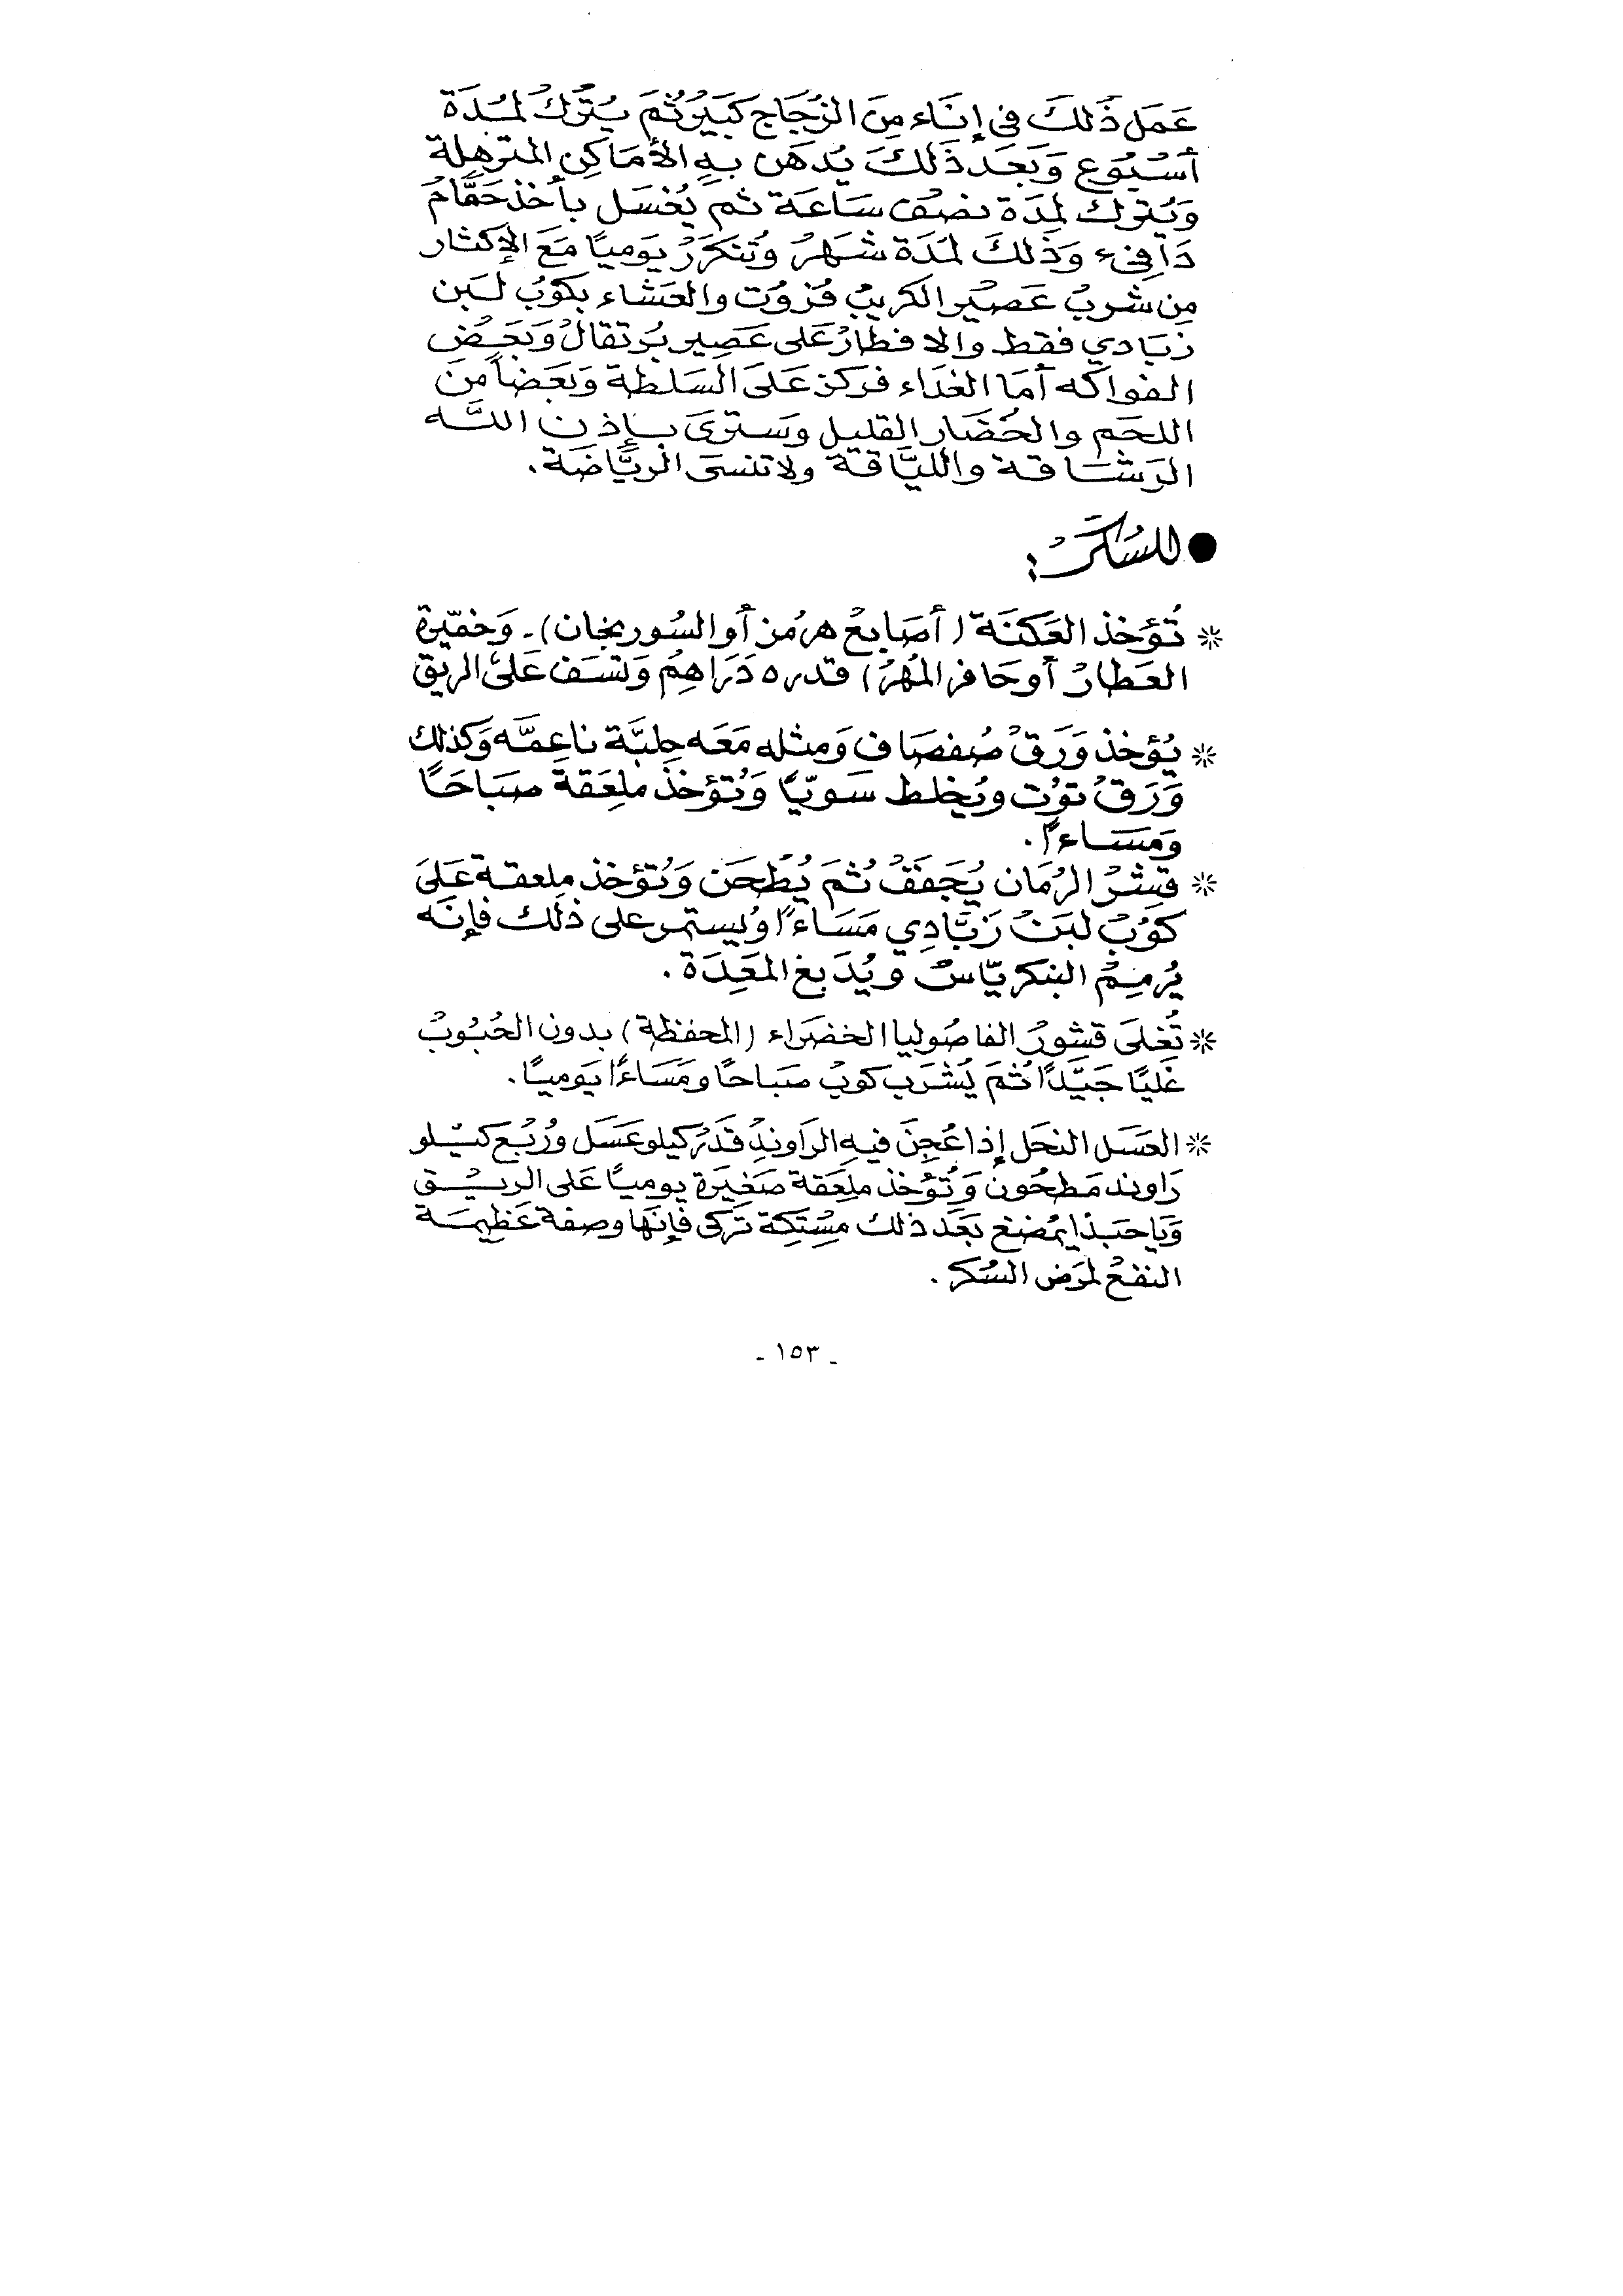 عَمَل ذَلكَ فى إنَاء مِنَ الزُجَاج كَبَيرْثُمَ يُتَركْ لمُدَة
أسْبُوَع وَبَعَد ذَلكَ يُدهَن بهِ الأمَاكِن المترَهِلة
وَيُترك لمِدَة نصفْ سَاعَة ثم يُغْسَل بأخذ حَمَّامْ
دَافىء وَذَلكَ لمَدَة شَهَرْ وَتُتكَرَرْ يَوميًا مَعَ الإكثار
مِن شربْ عَصيْر الكريبْ فرْوُت والعَشاء بكوُبْ لبَن
زبَادي فقط والافطارْ عَلى عَصِير بُرتقالْ وَبَعَضْ
الفواكَه أمَا الغدَاء فركز عَلَى السَلطة وَبَعَضاً مِنَ
اللحَم والخُضَار القليل وسَترىَ بإذن اللَّه
الرَشَاقة واللّيَاقة ولا تنسىَ الريَّاضَة.
● للسُكَرْ:
* تُؤَخذ العَكنَة (أصَابعْ هرمُز أو السُوريجان) - وَخمّيرة
العَطارْ أو حَافر المُهرْ) قدر ٥ دَرَاهِمْ وَتسَف عَلىَ الريق
* يُؤخذ وَرَقْ صُفصَاف وَمثله مَعَه حِلبَّة ناعِمَّه وَكذلك
وَرَقْ توُت ويُخلط سَويّاً وَتُؤخذ ملعَقة صبَاحًا
وَمَسَاءاً.
* قِشرْ الرُمَان يُجَففْ ثُمَ يُطحَن وَتُؤخذ ملعقة عَلَىَ
كوُبْ لبَنْ زَبَّادِي مَسَاءًا وَيُستمر على ذلَك فإنَه
يُرمِمْ البنكريّاسْ ويُدَبغ المعَدِة.
* تُغلىَ قشورْ الفاصُوليا الخضرَاء (المحفظة) بدون الحُبُوبْ
غَليًا جَيَّدًا ثُمَ يُشرَب كوبْ صبَاحًا ومَسَاءًا يَوميًا.
* العَسَل النحَل إذا عُجِنَ فيهِ الرَاوندِ قدَرْ كيلو عَسَل ورُبْع كيْلو
رَاوند مَطحُون وَتُؤخذ ملعَقة صَغيَرة يوميًا عَلى الريْق
وَيَا حَبَذا يمُضغ بَعَد ذلك مسْتِكة تَركى فإنَها وصفة عَظيمَة
النفعْ لمرَض السُكر.
- ١٥٣ -